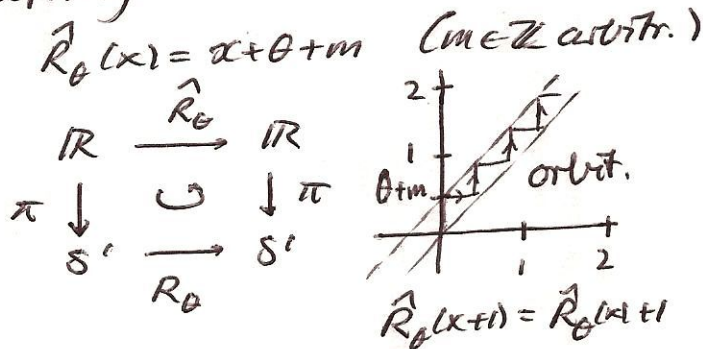 R̂_θ(x) = x+θ+m (m∈ℤ arbitr.)
ℝ R̂_θ→ ℝ
π ↓ ↺ ↓ π
S¹ →R_θ S¹
2
1
θ+m
orbit.
1 2
R̂_θ(x+1) = R̂_θ(x)+1